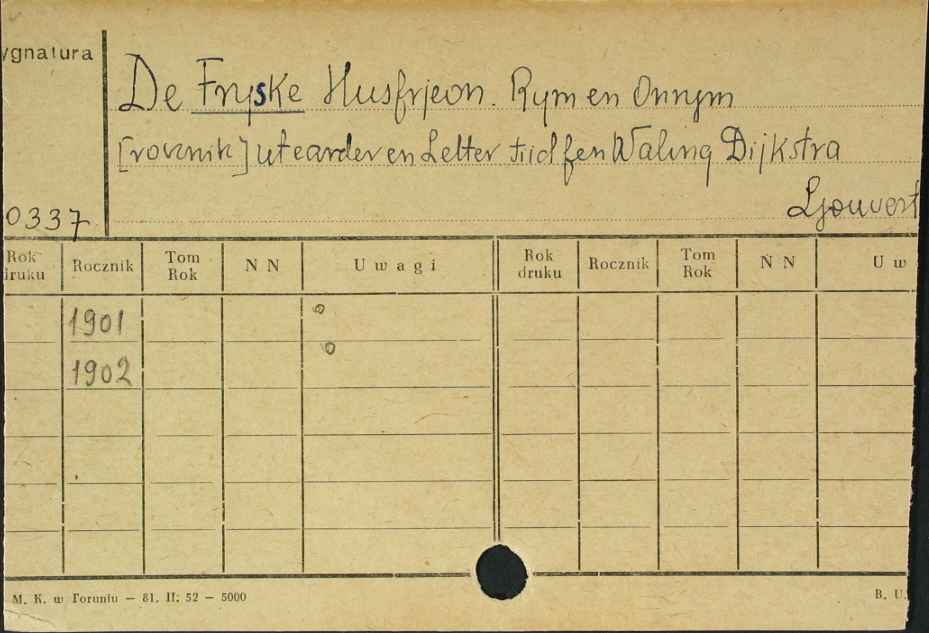 ygnatura
De Fryske Husfrjeon. Rym en Onrym
[rocznik] utearder en Letter tiid fen Waling Dijkstra
Ljouvert
0337
Rok druku Rocznik Tom Rok N N Uwagi Rok druku Rocznik Tom Rok N N Uw
1901
1902
M. K. w Toruniu — 81. II. 52 — 5000 B. U.